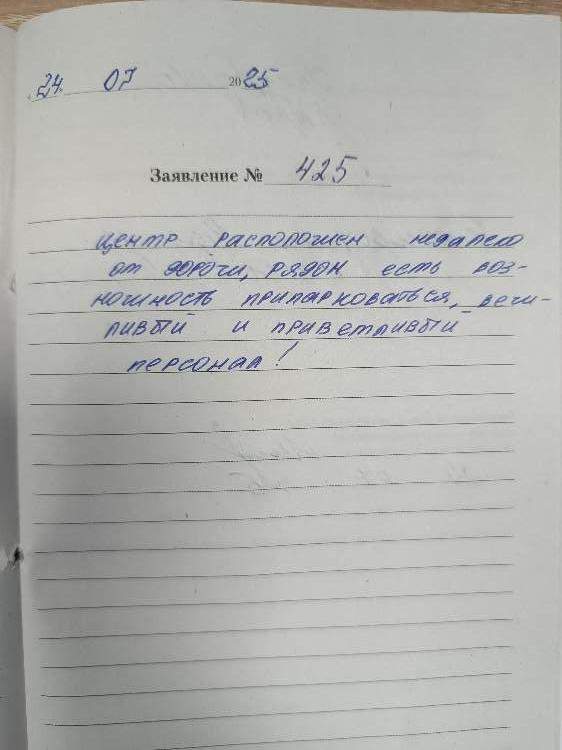 «24» 07 2025
Заявление № 425
Центр расположен недалеко
от дороги, рядом есть воз-
можность припарковаться, вежли-
ливый и приветливый
персонал!